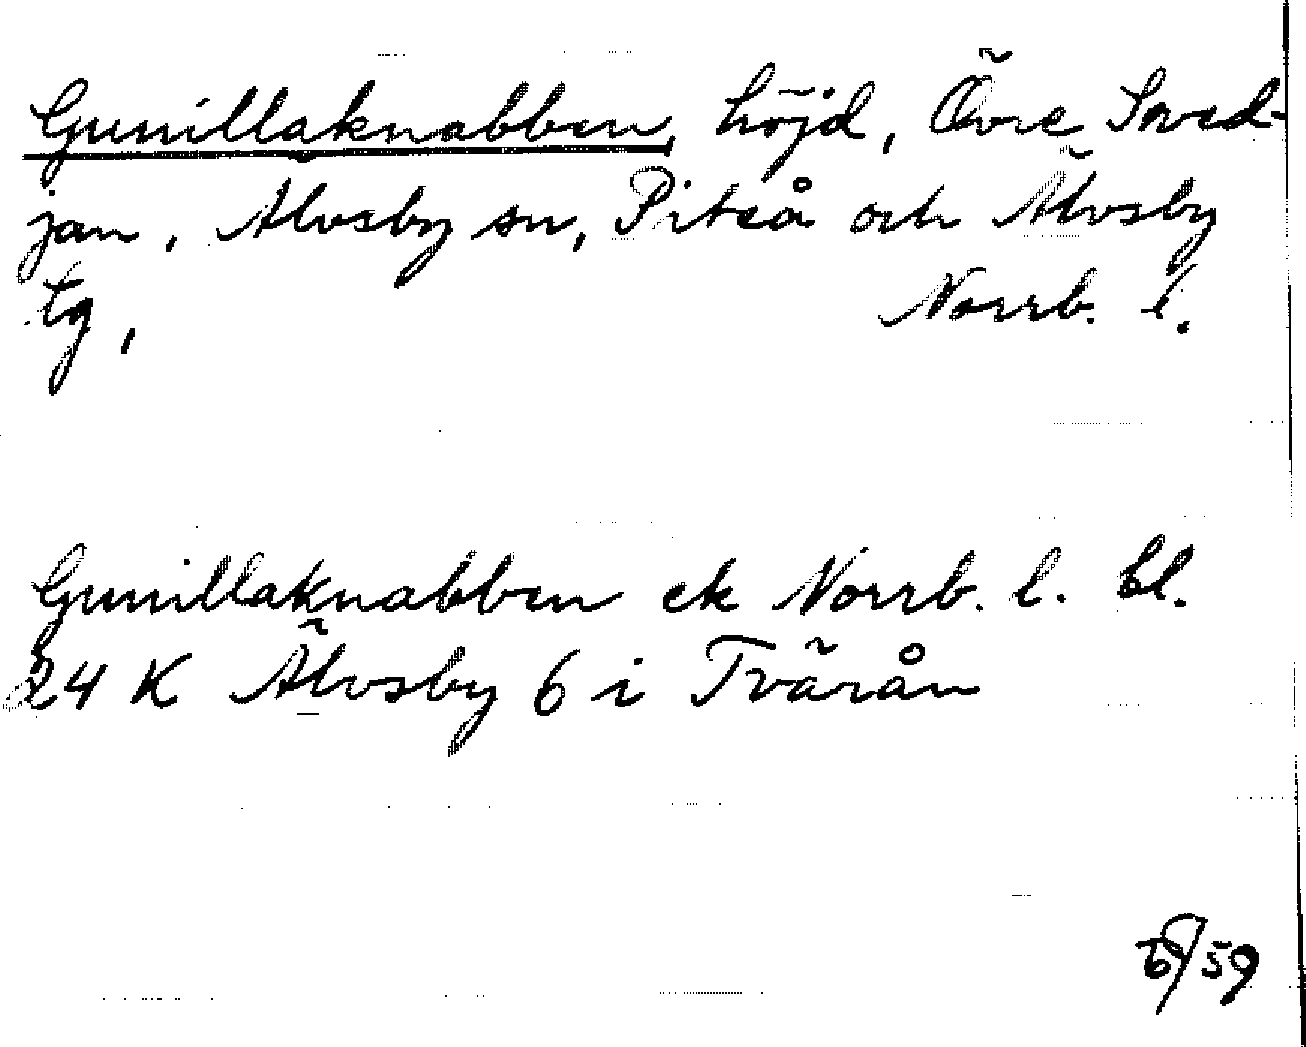 Gunillaknabben, höjd, Övre Sved-
jan, Älvsby sn, Piteå och Älvsby
tg, Norrb. l.
Gunillaknabben ek Norrb. l. bl.
24 K Älvsby 6 i Tvärån
59